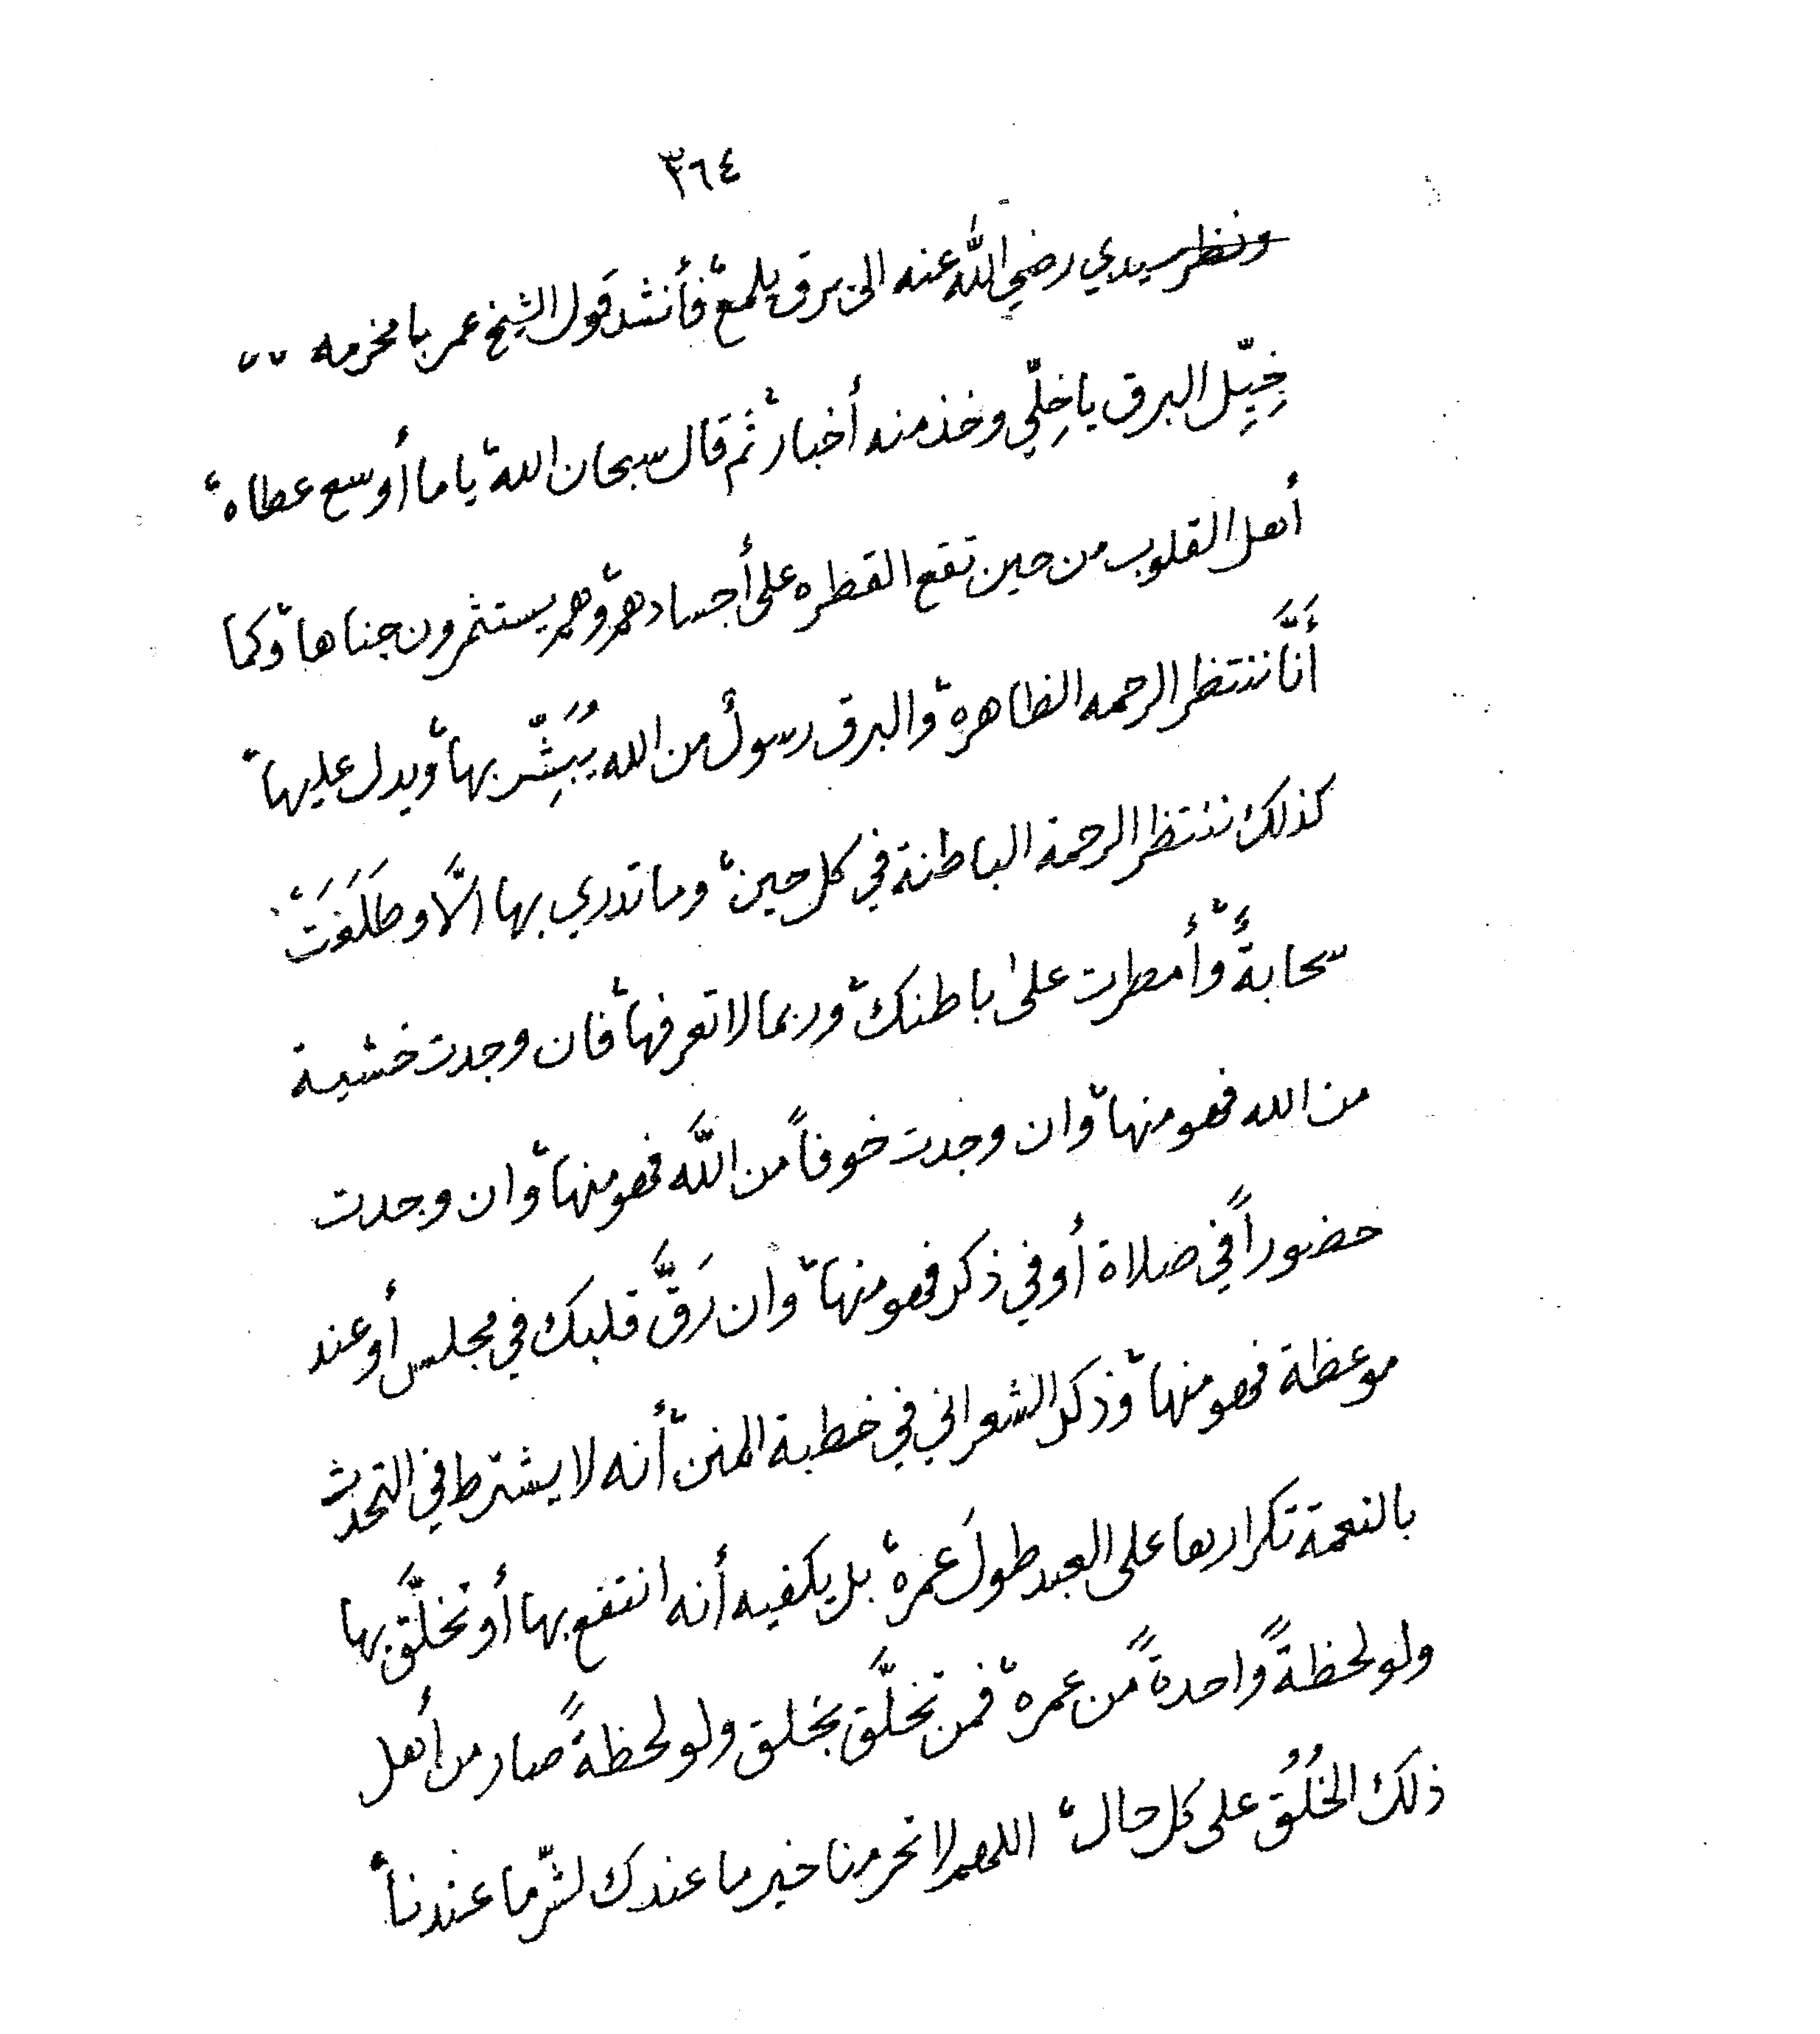 ٣٦٤
ونظر سيدي رضي الله عنه الى برق يلمع، فأنشد قول الشيخ عمر بامخرمه ،،
خِيِّل البرق ياخِلّي وخذ منه أخبار، ثم قال سبحان الله، ياما أوسع عطاه،
أهل القلوب من حين تقع القطره على أجسادهم، وهم يستثمرون جناها، وكما
أنَّنا ننتظر الرحمه الظاهره، والبرق رسولٌ من الله يُبَشِّر بها، ويدل عليها،
كذلك ننتظر الرحمة الباطنة في كل حين، وما تدري بها الَّا وطَلَعَت،
سحابةٌ، وأمطرت على باطنك، وربما لا تعرفها، فان وجدت خشية
من الله فهو منها، وان وجدت خوفاً من اللَّه فهو منها، وان وجدت
حضوراً في صلاة أو في ذكر فهو منها، وان رَقَّ قلبك في مجلس أو عند
موعظة فهو منها، وذكر الشعراني في خطبة المنن، أنه لا يشترط في التحدث
بالنعمة تكرارها على العبد طولَ عمره، بل يكفيه أنه انتفع بها أو تخلَّق بها
ولو لحظةً واحدةً من عمره، فمن تخلَّق بخلق ولو لحظةً صار من أهل
ذلك الخُلُق على كل حال، اللهم لا تحرمنا خير ما عندك لشرّ ما عندنا،